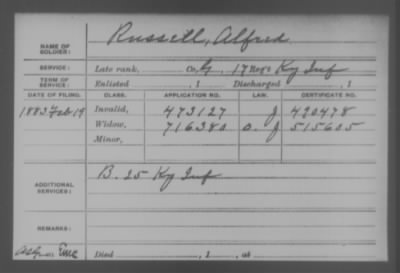 NAME OF SOLDIER: Russell, Alfred
SERVICE: Late rank, Co. G, 17 Reg't Ky Inf
TERM OF SERVICE: Enlisted , 1 Discharged , 1
DATE OF FILING. CLASS. APPLICATION NO. LAW. CERTIFICATE NO.
1883 Feb 19 Invalid, 473127 J 420478
Widow, 716380 O. J 515605
Minor,
ADDITIONAL SERVICES: B. 25 Ky Inf
REMARKS:
Died , 1 , at